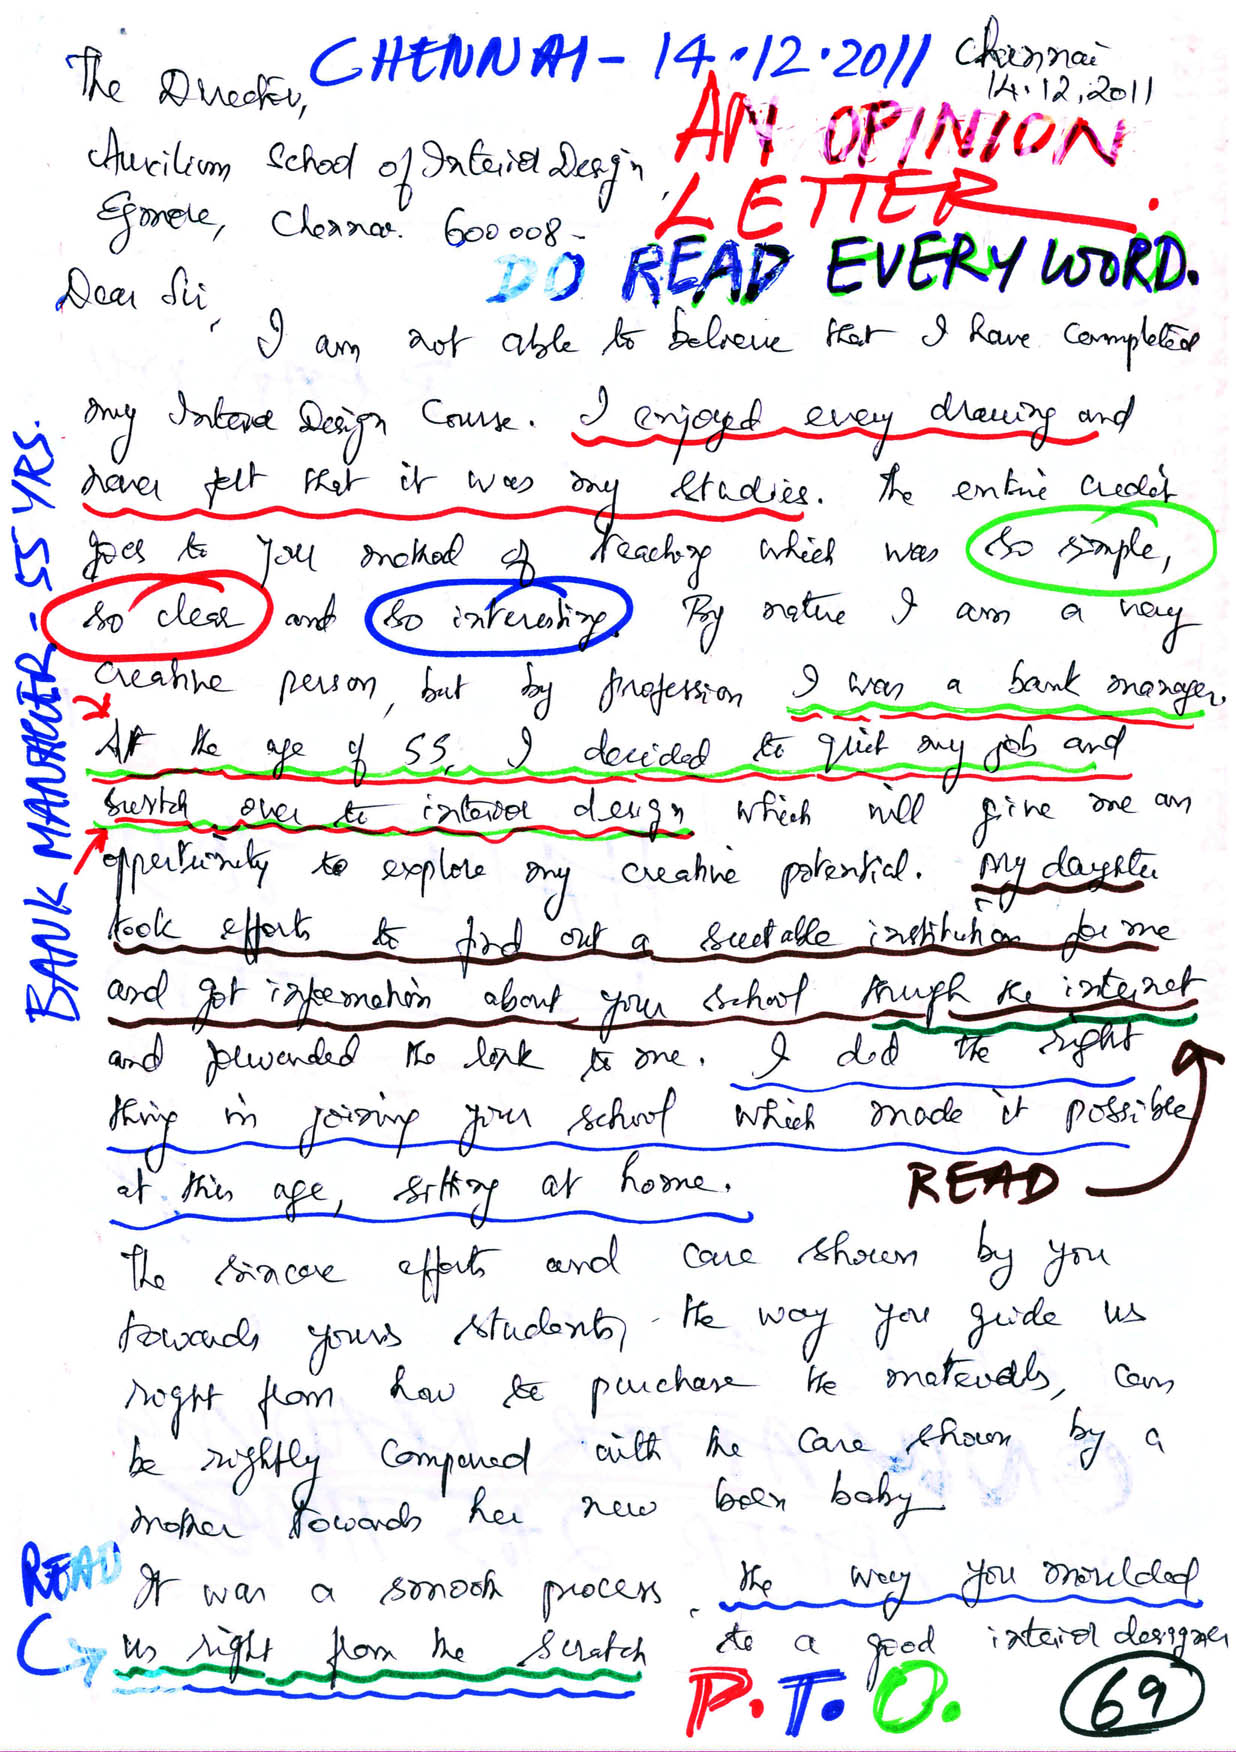 CHENNAI - 14.12.2011
Chennai
14.12.2011
The Director,
AN OPINION
LETTER.
Auxilium School of Interior Design,
Egmore, Chennai. 600008-
DO READ EVERY WORD.
Dear Sir,
I am not able to believe that I have completed
my Interior Design Course. I enjoyed every drawing and
never felt that it was my studies. The entire credit
goes to you method of teaching which was so simple,
so clear and so interesting. By nature I am a very
creative person, but by profession I was a bank manager.
At the age of 55, I decided to quit my job and
switch over to interior design which will give me an
opportunity to explore my creative potential. My daughter
took efforts to find out a suitable institution for me
and got information about your school through the internet
and forwarded the link to me. I did the right
thing in joining your school which made it possible
at this age, sitting at home.
READ
BANK MANAGER - 55 YRS.
The sincere efforts and care shown by you
towards yours students, the way you guide us
right from how to purchase the materials, can
be rightly compared with the care shown by a
mother towards her new born baby
READ
It was a smooth process, the way you moulded
us right from the scratch to a good interior designer
P.T.O.
69